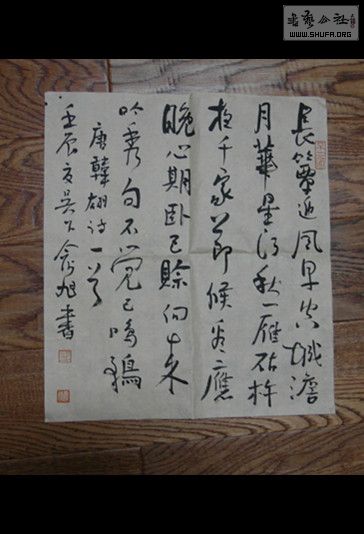 書藝公社
WWW.SHUFA.ORG
長簟迎风早空城澹
月華星河秋一雁砧杵
夜千家節候看應
晚心期卧已賒向来
吟秀句不觉已鸣鴉
唐韓翃诗一首
壬辰夏吴旭書